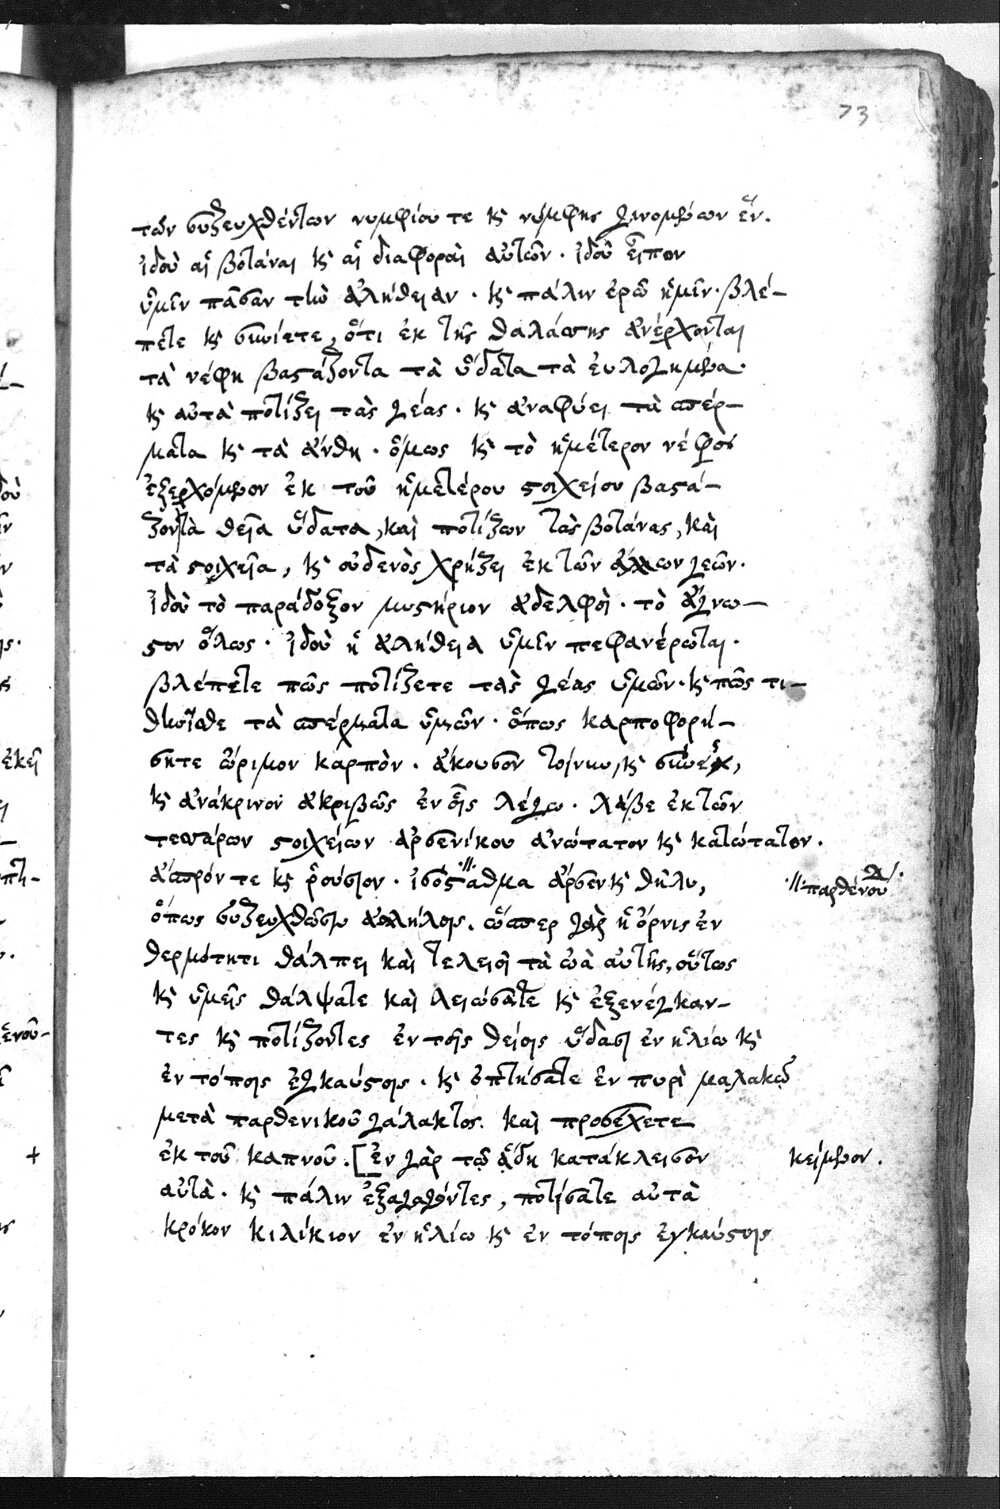 73
τῶν συζευχθέντων νυμφίου τε κ νύμφης γινομένων ἕν.
ἰδοὺ αἱ βοτάναι κ αἱ διαφοραὶ αὐτῶν. ἰδοὺ εἶπον
ὑμῖν πᾶσαν τὴν ἀλήθειαν. κ πάλιν ἐρῶ ἡμῖν. βλέ-
πετε κ συνίετε, ὅτι ἐκ τῆς θαλάσσης ἀνέρχονται
τὰ νέφη βαστάζοντα τὰ ὕδατα τὰ εὐλογημένα.
κ αὐτὰ ποτίζει τὰς γέας. κ ἀναφύει τὰ σπέρ-
ματα κ τὰ ἄνθη. ὅμως κ τὸ ἡμέτερον νέφος
ἐξερχόμενον ἐκ τοῦ ἡμετέρου στοιχείου βαστά-
ζοντα θεῖα ὕδατα, καὶ ποτίζων τὰς βοτάνας, καὶ
τὰ στοιχεῖα, κ οὐδενὸς χρήζει ἐκ τῶν ἄλλων γεῶν.
ἰδοὺ τὸ παράδοξον μυστήριον ἀδελφοὶ. τὸ ἄγνω-
στον ὅλως. ἰδοὺ ἡ ἀλήθεια ὑμῖν πεφανέρωται.
βλέπετε πῶς ποτίζετε τὰς γέας ὑμῶν. κ πῶς τι-
θηνῆσθε τὰ σπέρματα ὑμῶν. ὅπως καρποφορή-
σητε ὥριμον καρπὸν. ἄκουσον τοίνυν, κ σύνες,
κ ἀνάκρινον ἀκριβῶς ἐν οἷς λέγω. λάβε ἐκ τῶν
τεσσάρων στοιχείων ἀρσενίκου ἀνώτατον κ κατώτατον.
ἄσπρόν τε κ ῥούσιον. ἰσόσταθμα ἄρσεν κ θῆλυ,
//·παρθένου
ὅπως συζευχθῶσιν ἀλλήλοις. ὥσπερ γὰρ ἡ ὄρνις ἐν
θερμότητι θάλπει καὶ τελειοῖ τὰ ὠὰ αὐτῆς, οὕτως
κ ὑμεῖς θάλψατε καὶ λειώσατε κ ἐξενέγκαν-
τες κ ποτίζοντες ἐν τοῖς θείοις ὕδασι ἐν ἡλίω κ
ἐν τόποις ἐγκαύστοις. κ ὀπτήσατε ἐν πυρὶ μαλακῷ
μετὰ παρθενικοῦ γάλακτος. καὶ προσέχετε
ἐκ τοῦ καπνοῦ. [ἐν γὰρ τῷ ᾅδη κατάκλεισον
κείμενον.
αὐτὰ. κ πάλιν ἐξαγαγόντες, ποτίσατε αὐτὰ
κρόκον κιλίκιον ἐν ἡλίω κ ἐν τόποις ἐγκαύστοις